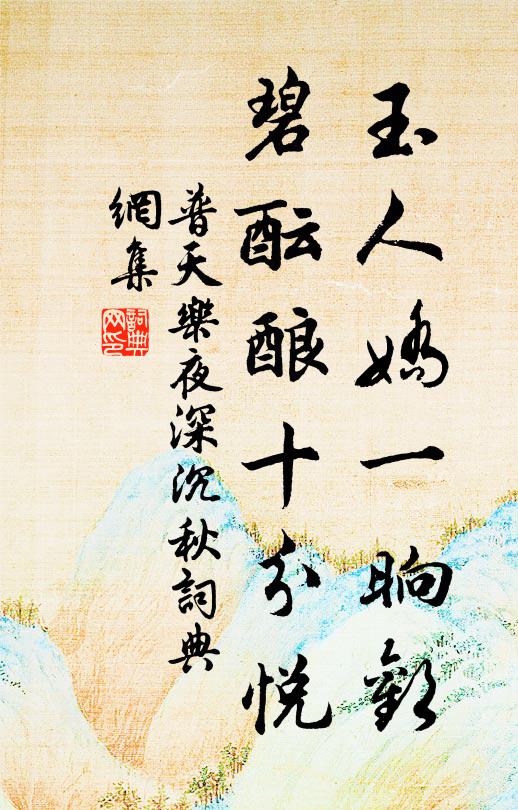 玉人嬌一晌歡
碧酝酿十分悦
普天樂夜深沉秋詞典
網集
詞典
网印